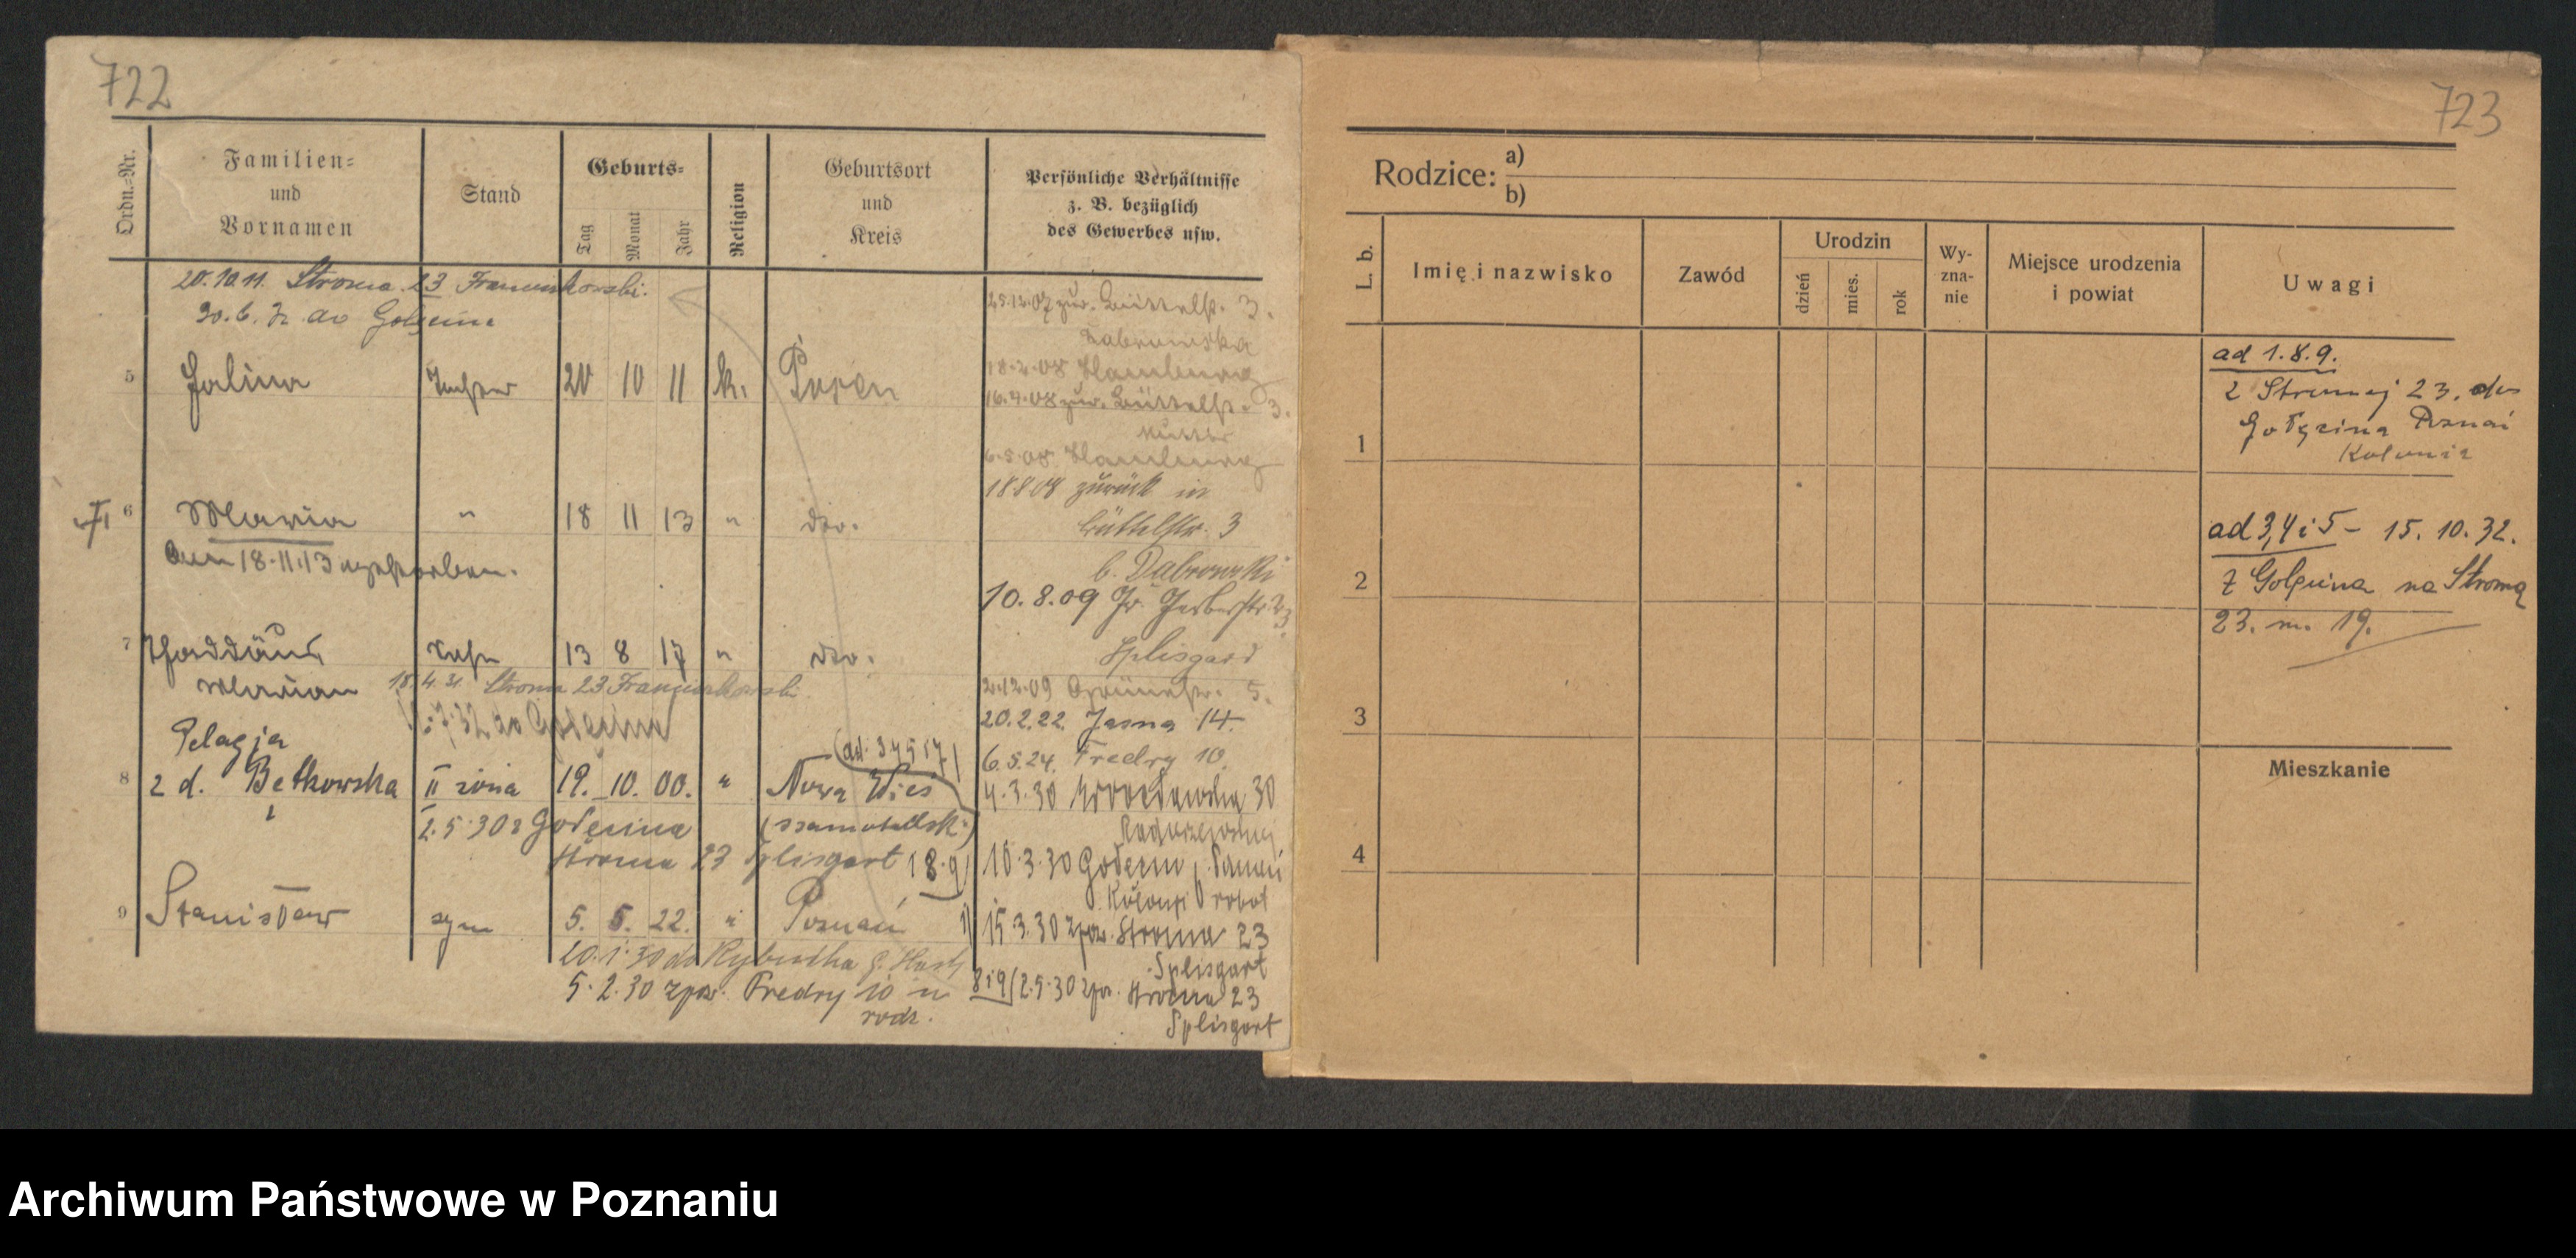 722
Ordn.=Nr.
Familien=
und
Vornamen
Stand
Geburts=
Tag
Monat
Jahr
Religion
Geburtsort
und
Kreis
Persönliche Verhältnisse
z. B. bezüglich
des Gewerbes usw.
20.10.11. Stroma 23 Franciszkowski.
30.6. do Golęcina
5 Halina Tochter 20 10 11 k. Posen
6 Maria " 18 11 13 " do.
Am 18.11.13 gestorben.
7 Thaddäus Sohn 13 8 17 " do.
Marian
18.4.31 Stroma 23
7.32 do Golęcina
Pelagja
8 z d. Betkowska II żona 19. 10. 00. " Nowa Wieś
(ad. 3 4 5 i 7)
2.5.30 z Golęcina (szamotulsk.)
Stroma 23 Splisgart 18.9)
9 Stanisław syn 5. 5. 22. " Poznań
20.1.30 do
5.2.30 zpow. Fredry 10 u
rodz.
25.12.07 zur. Büttelstr. 3.
Dabrowska
18.2.08 Hamburg
16.4.08 zur. Büttelstr. 3.
Mutter
6.5.08 Hamburg
18 8 08 zurück in
Büttelstr. 3
b. Dabrowski
10.8.09 Gr. Gerberstr. 23
Splisgard
2.12.09 Grünestr. 5.
20.2.22. Jasna 14.
6.5.24. Fredry 10.
4.3.30 30
10.3.30 Golęcin, Poznań
robot
1) 15.3.30 zpow. Stroma 23
Splisgart
8 i 9) 2.5.30 zpow. Stroma 23
Splisgart
723
Rodzice: a)
b)
L. b.
Imię i nazwisko
Zawód
Urodzin
dzień
mies.
rok
Wy-
zna-
nie
Miejsce urodzenia
i powiat
Uwagi
1
2
3
4
ad 1.8.9.
z Stromej 23. do
Golęcina Poznań
Kolonia
ad 3,4 i 5 – 15. 10. 32.
z Golęcina na Stromą
23. m. 19.
Mieszkanie
Archiwum Państwowe w Poznaniu